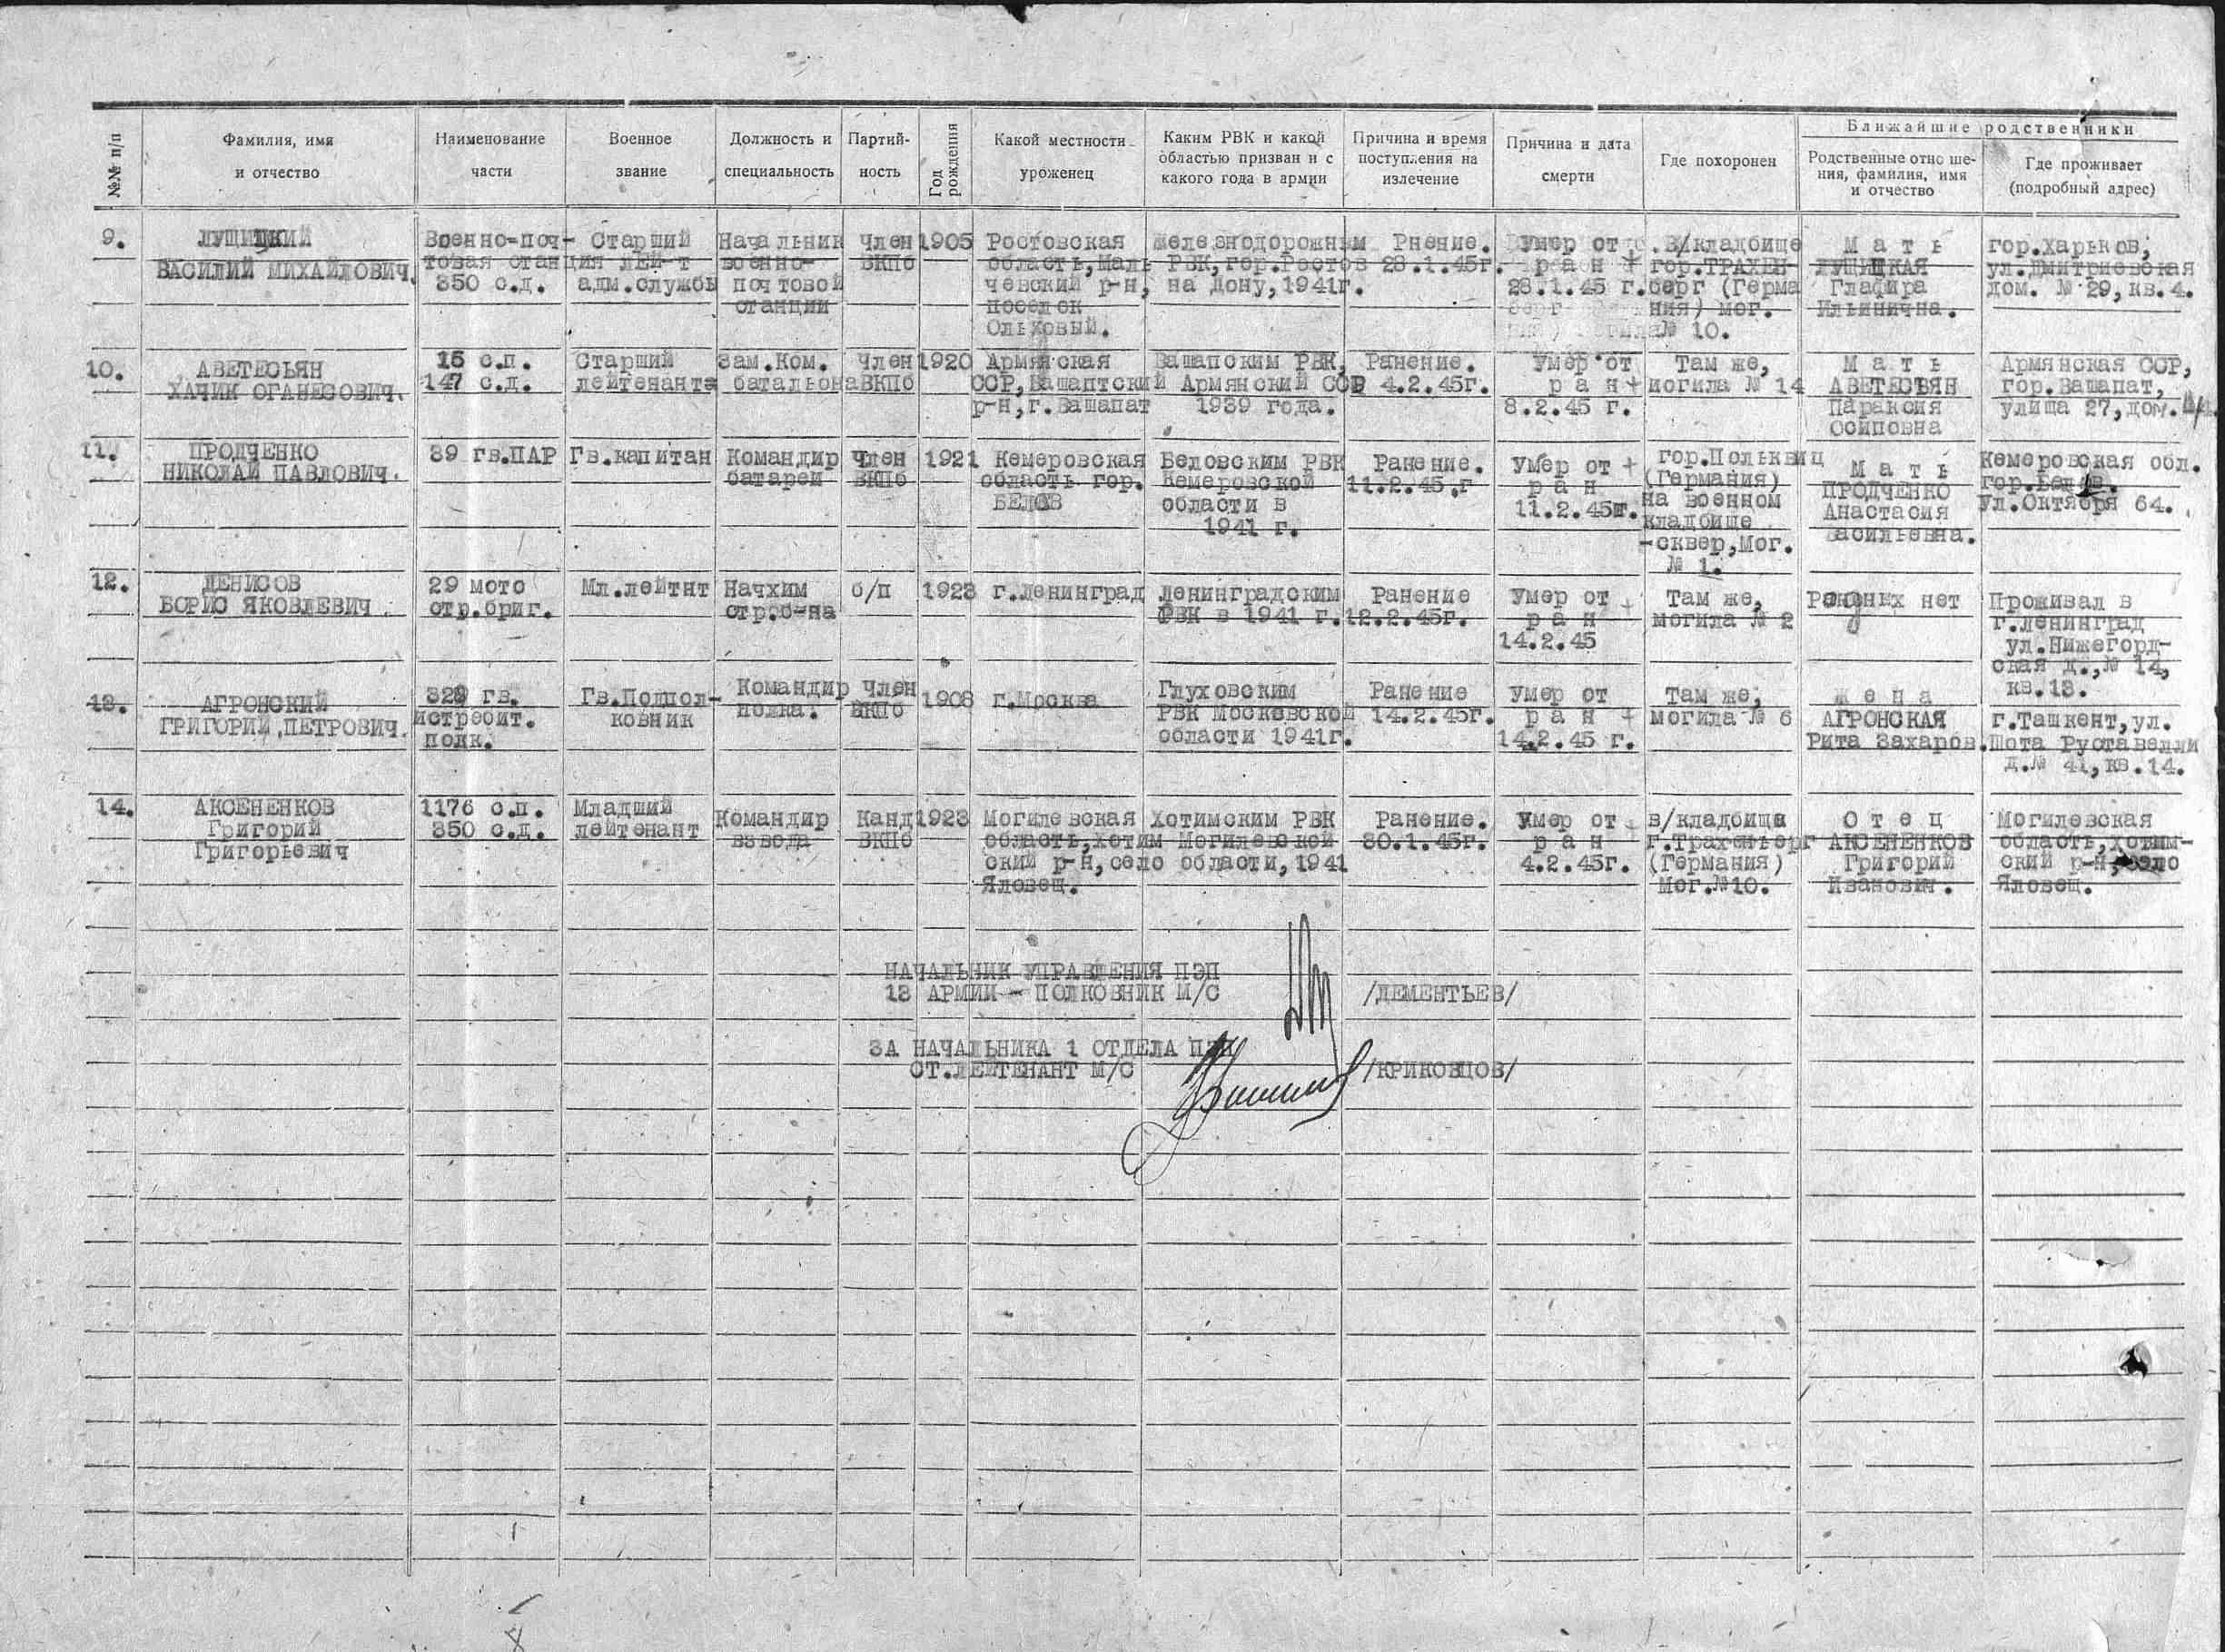 №№ п/п
Фамилия, имя
и отчество
Наименование
части
Военное
звание
Должность и
специальность
Партий-
ность
Год
рождения
Какой местности
уроженец
Каким РВК и какой
областью призван и с
какого года в армии
Причина и время
поступления на
излечение
Причина и дата
смерти
Где похоронен
Ближайшие родственники
Родственные отно ше-
ния, фамилия, имя
и отчество
Где проживает
(подробный адрес)
9.
ЛУЩИЦКИЙ
ВАСИЛИЙ МИХАЙЛОВИЧ.
Военно-поч-
товая станция
350 с.д.
Старший
лей-т
адм.службы
Начальник
военно-
почтовой
станции
Член
ВКПб
1905
Ростовская
область, Маль
чевский р-н,
поселок
Ольховый.
Железнодорожным
РВК, гор.Ростов
на Дону, 1941г.
Рнение.
28.1.45г.
Умер от
р а н +
28.1.45 г.
В/кладбище
гор.ТРАХЕН-
берг (Герма
ния) мог.
№ 10.
М а т ь
ЛУЩИЦКАЯ
Глафира
Ильинична.
гор.Харьков,
ул.Дмитриевская
дом. № 29, кв. 4.
10.
АВЕТЕСЬЯН
ХАЧИК ОГАНЕСОВИЧ.
15 с.п.
147 с.д.
Старший
лейтенантa
Зам.Ком.
батальона
Член
ВКПб
1920
Армянская
ССР, Вашаптский
р-н, г.Вашапат
Вашапским РВК,
Армянский ССР
1939 года.
Ранение.
4.2.45г.
Умер от
р а н +
8.2.45 г.
Там же,
могила № 14
М а т ь
АВЕТЕСЬЯН
Параксия
Осиповна
Армянская ССР,
гор.Вашапат,
улица 27, дом.
11.
ПРОДЧЕНКО
НИКОЛАЙ ПАВЛОВИЧ.
39 гв.ПАР
Гв.капитан
Командир
батареи
Член
ВКПб
1921
Кемеровская
область гор.
БЕЛОВ
Беловским РВК
Кемеровской
области в
1941 г.
Ранение.
11.2.45.г
Умер от +
р а н
11.2.45г.
гор.Польквиц
(Германия)
на военном
кладбище
-сквер, Мог.
№ 1.
М а т ь
ПРОДЧЕНКО
Анастасия
Васильевна.
Кемеровская обл.
гор.Белов.
ул.Октября 64.
12.
ДЕНИСОВ
БОРИС ЯКОВЛЕВИЧ.
29 мото
стр.бриг.
Мл.лейтнт
Начхим
стр.б-на
б/п
1923
г.Ленинград
Ленинградским
РВК в 1941 г.
Ранение
12.2.45г.
Умер от +
р а н
14.2.45
Там же,
могила № 2
Родных нет
Проживал в
г.Ленинград
ул.Нижегород-
ская д., № 14,
кв.13.
13.
АГРОНСКИЙ
ГРИГОРИЙ ПЕТРОВИЧ.
329 гв.
истребит.
полк.
Гв.Подпол-
ковник
Командир
полка.
Член
ВКПб
1908
г.Москва
Глуховским
РВК Московской
области 1941г.
Ранение
14.2.45г.
Умер от
р а н +
14.2.45 г.
Там же,
могила № 6
Ж е н а
АГРОНСКАЯ
Рита Захаров.
г.Ташкент, ул.
Шота Руставелли
д.№ 41, кв.14.
14.
АКСЕНЕНКОВ
Григорий
Григорьевич
1176 с.п.
350 с.д.
Младший
лейтенант
Командир
взвода
Канд
ВКПб
1923
Могилевская
область, Хотим
ский р-н, село
Яловец.
Хотимским РВК
Могилевской
области, 1941
Ранение.
30.1.45г.
Умер от +
р а н
4.2.45г.
в/кладбище
г.Трахенберг
(Германия)
Мог.№10.
О т е ц
АКСЕНЕНКОВ
Григорий
Иванович.
Могилевская
область, Хотим-
ский р-н, село
Яловец.
НАЧАЛЬНИК УПРАВЛЕНИЯ ПЭП
13 АРМИИ - ПОЛКОВНИК М/С /ДЕМЕНТЬЕВ/
ЗА НАЧАЛЬНИКА 1 ОТДЕЛА ПЭП
СТ.ЛЕЙТЕНАНТ М/С /КРИКОВЦОВ/